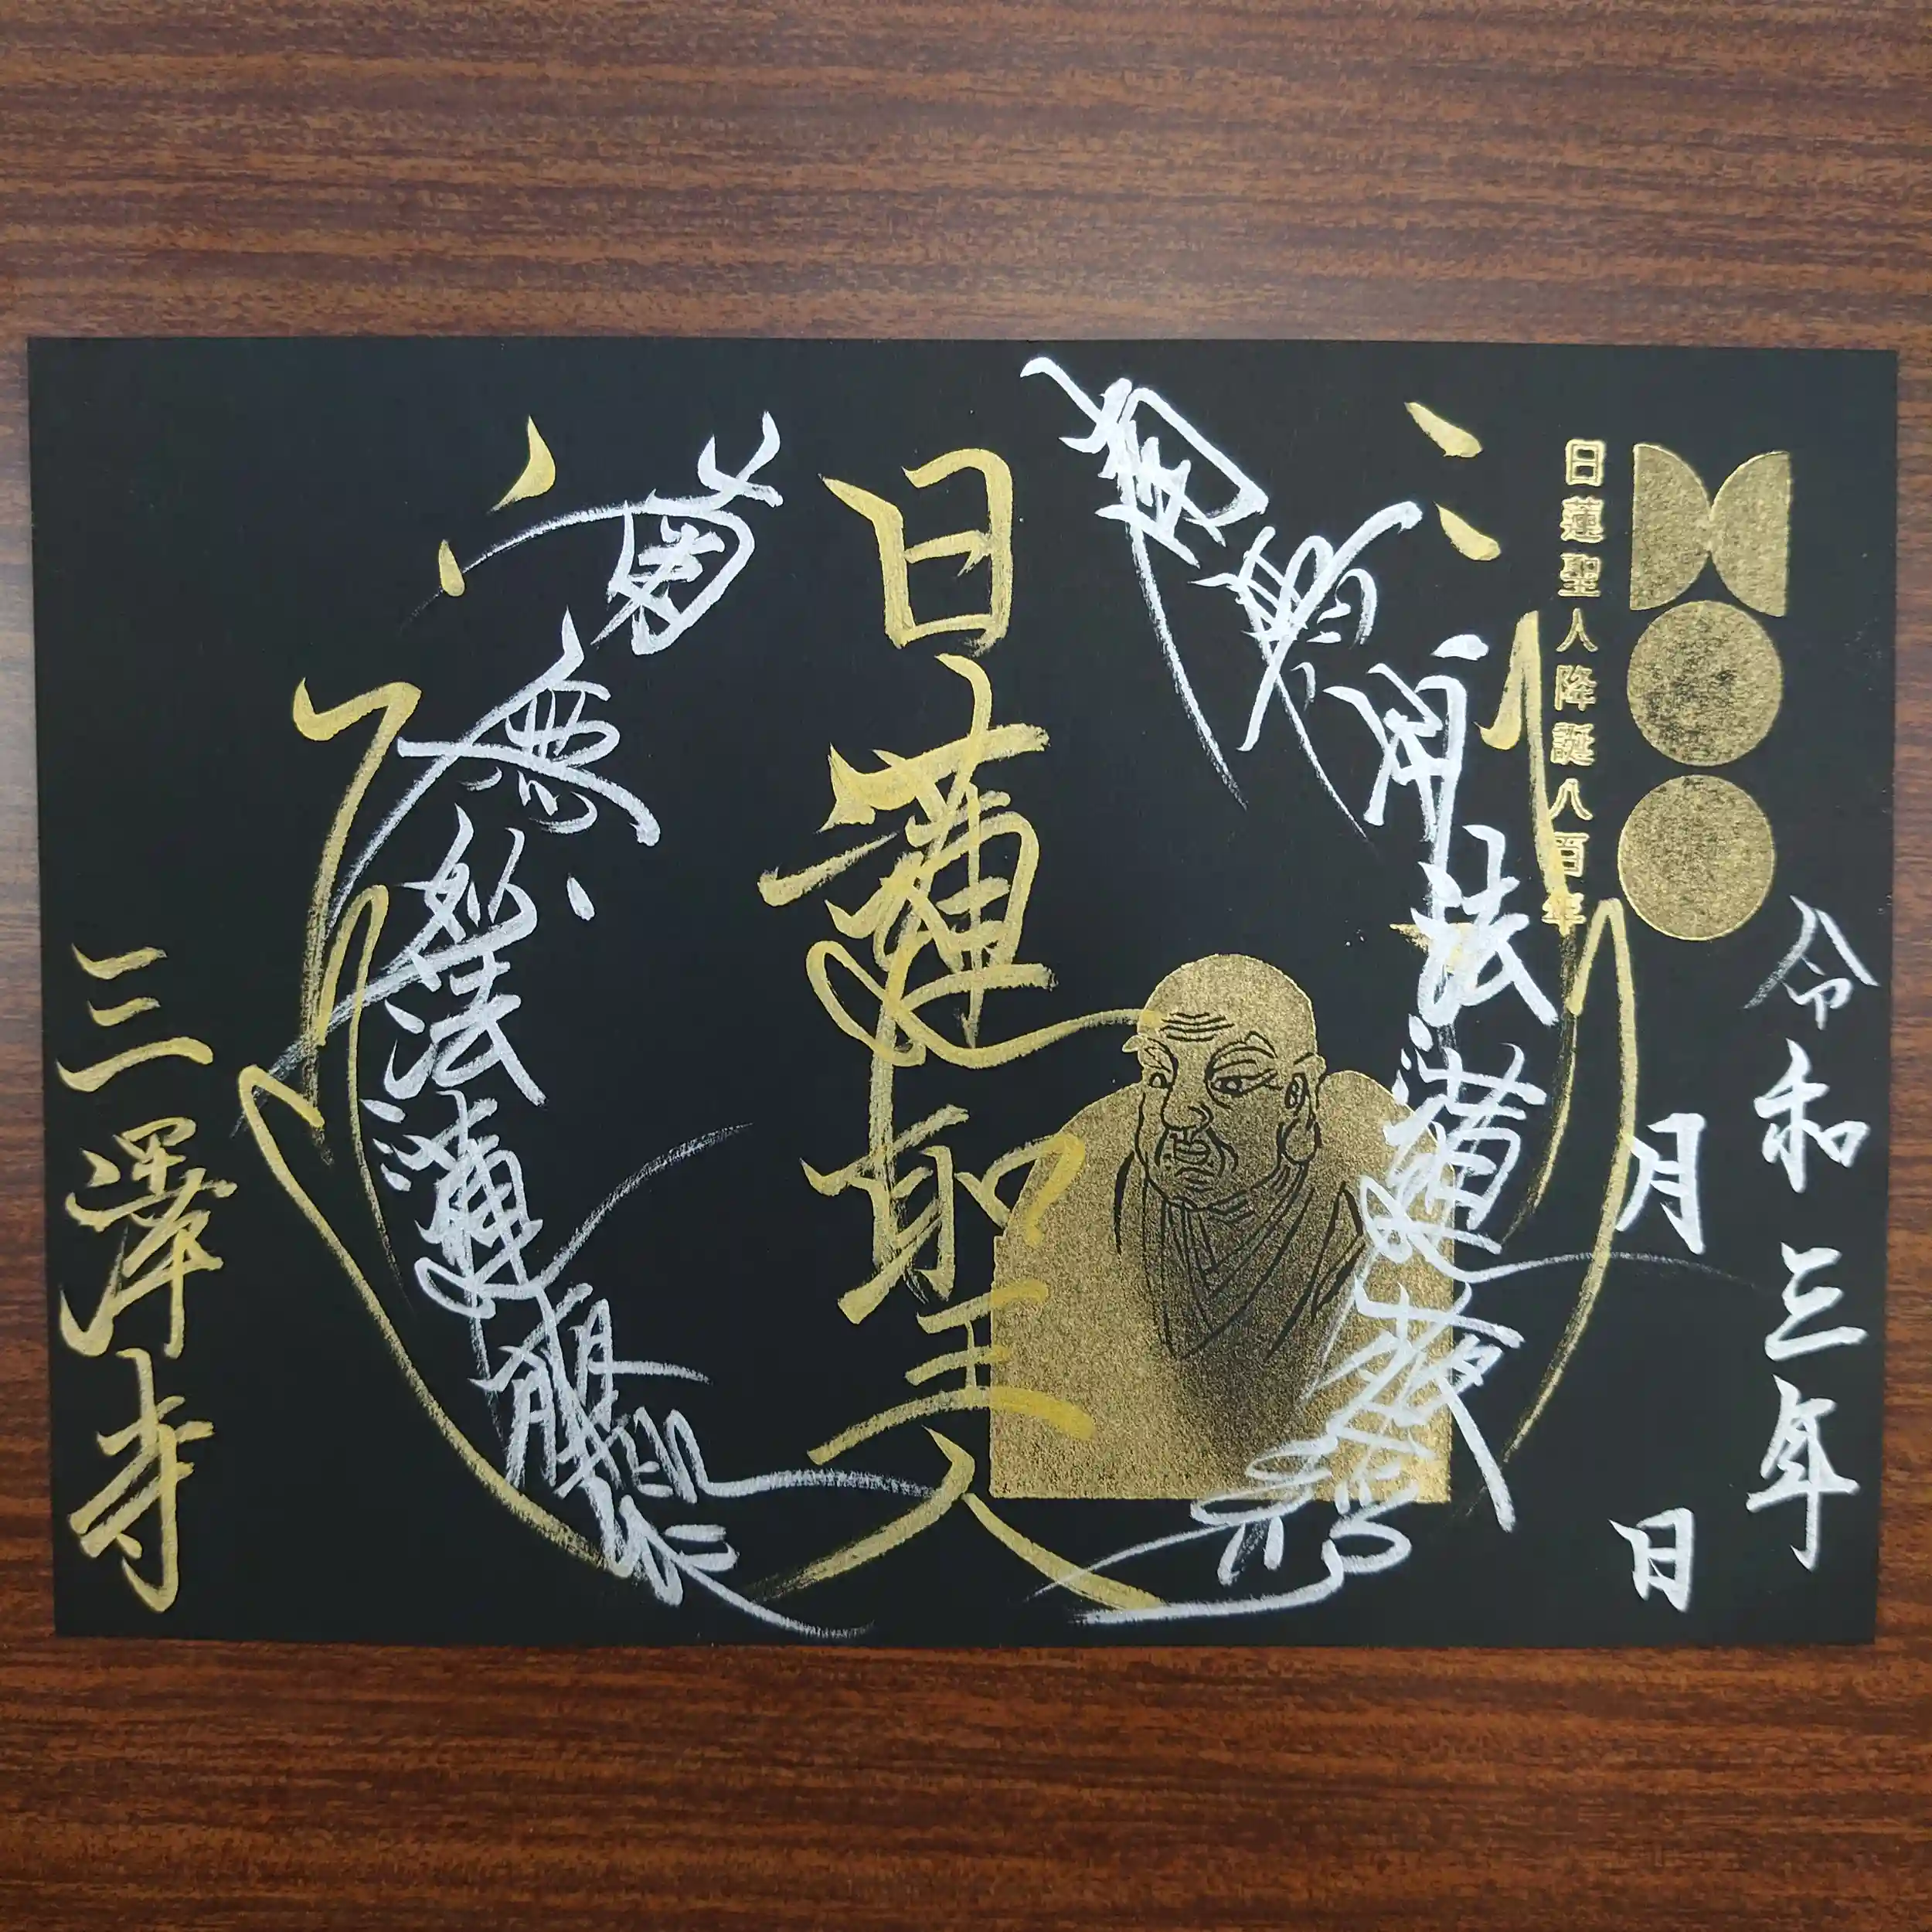 令和三年
月 日
日蓮聖人降誕八百年
南無妙法蓮華経
日蓮聖人
南無妙法蓮華経
三澤寺